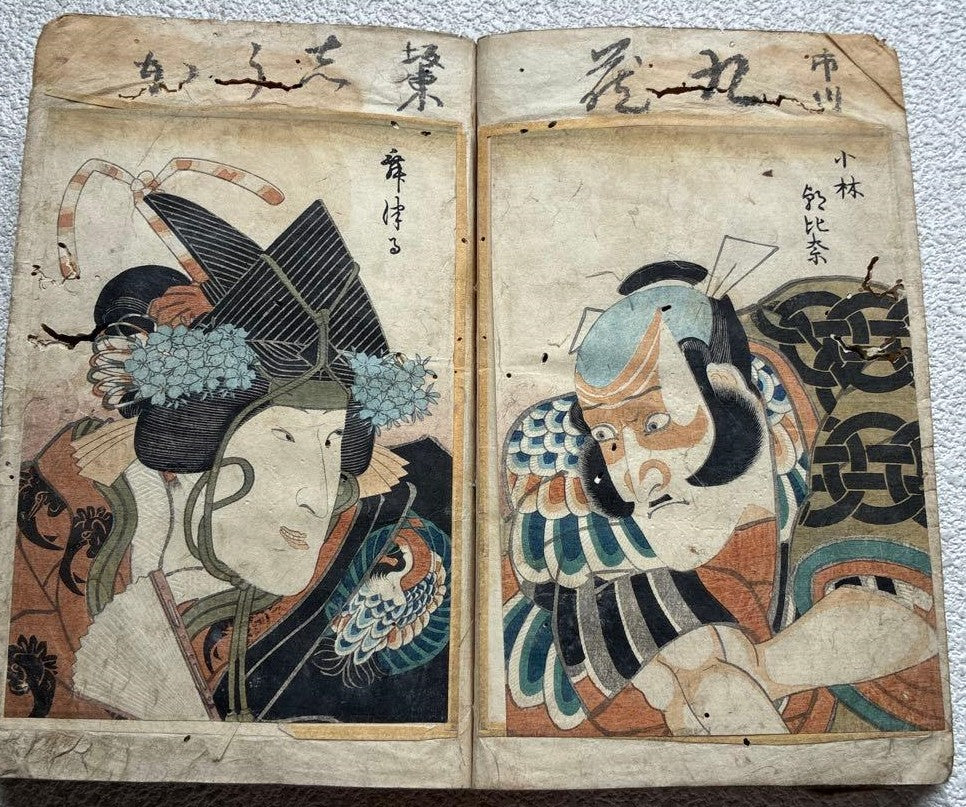 市川
九蔵
小林
朝比奈
坂東
志うか
舞津る